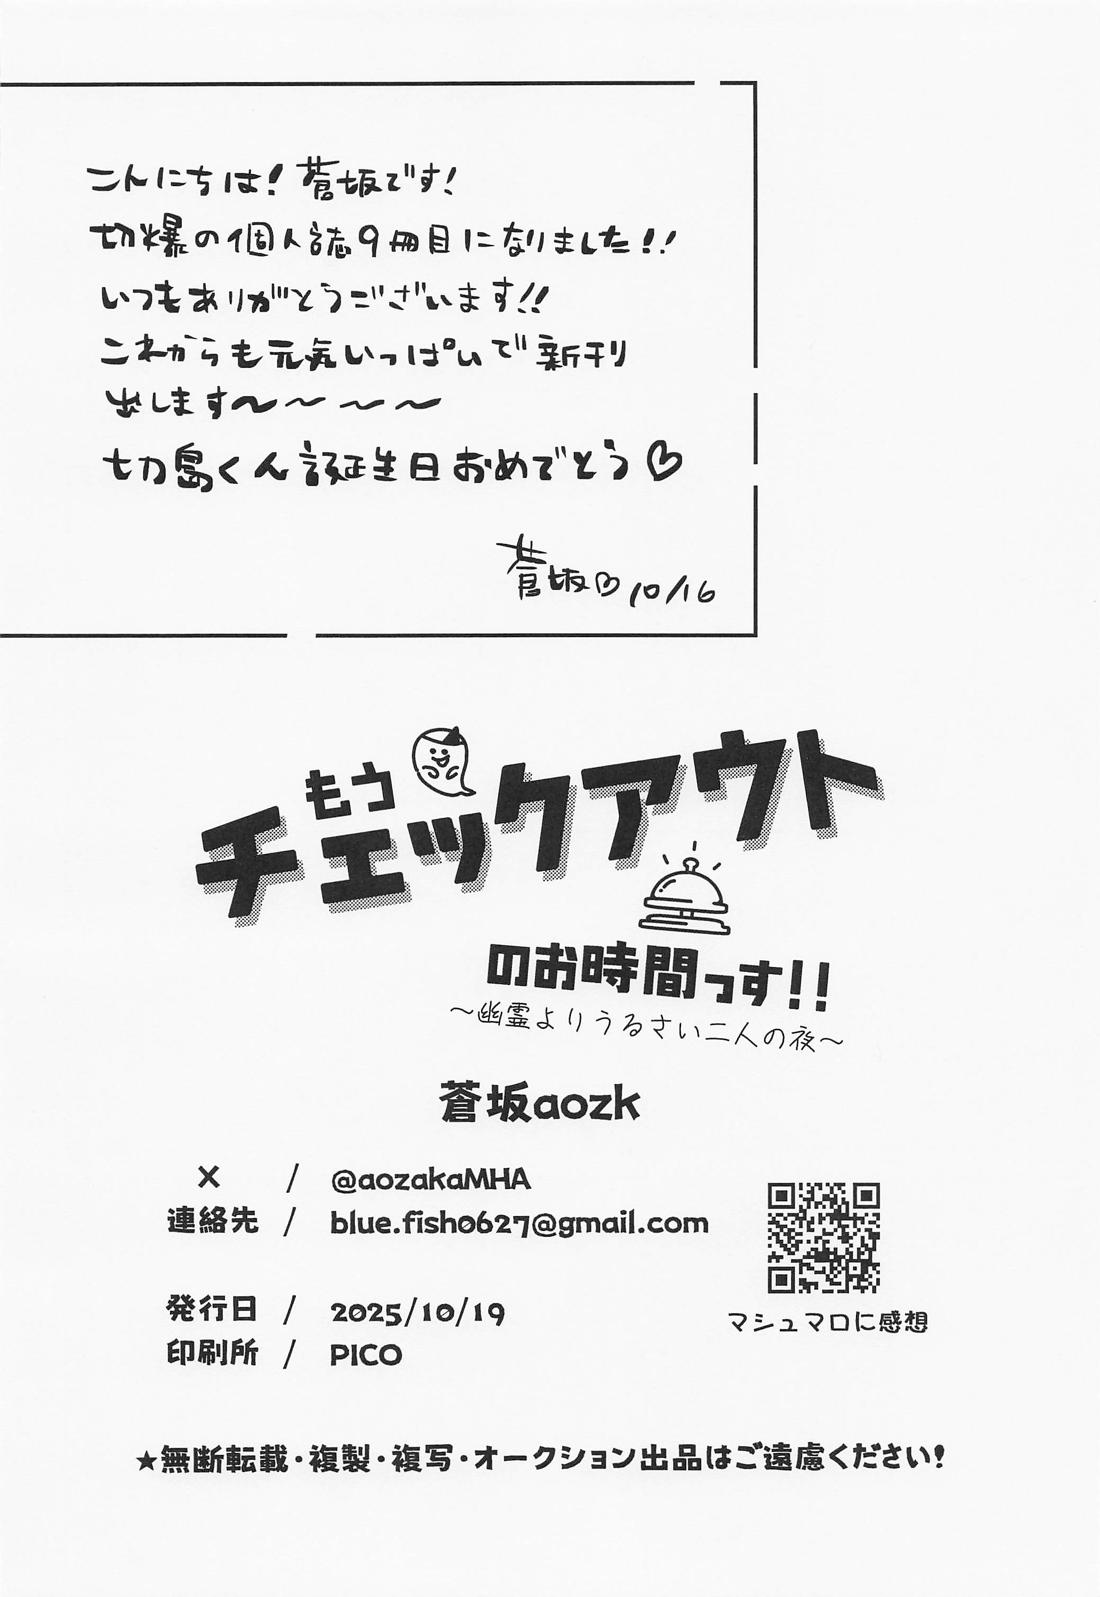 こんにちは!蒼坂です!
切爆の個人誌9冊目になりました!!
いつもありがとうございます!!
これからも元気いっぱいで新刊
出します〜〜〜〜
切島くん誕生日おめでとう♡
蒼坂♡10/16
もう
チェックアウト
のお時間っす!!
〜幽霊よりうるさい二人の夜〜
蒼坂aozk
X / @aozakaMHA
連絡先 / blue.fish0627@gmail.com
発行日 / 2025/10/19
印刷所 / PICO
マシュマロに感想
★無断転載・複製・複写・オークション出品はご遠慮ください!